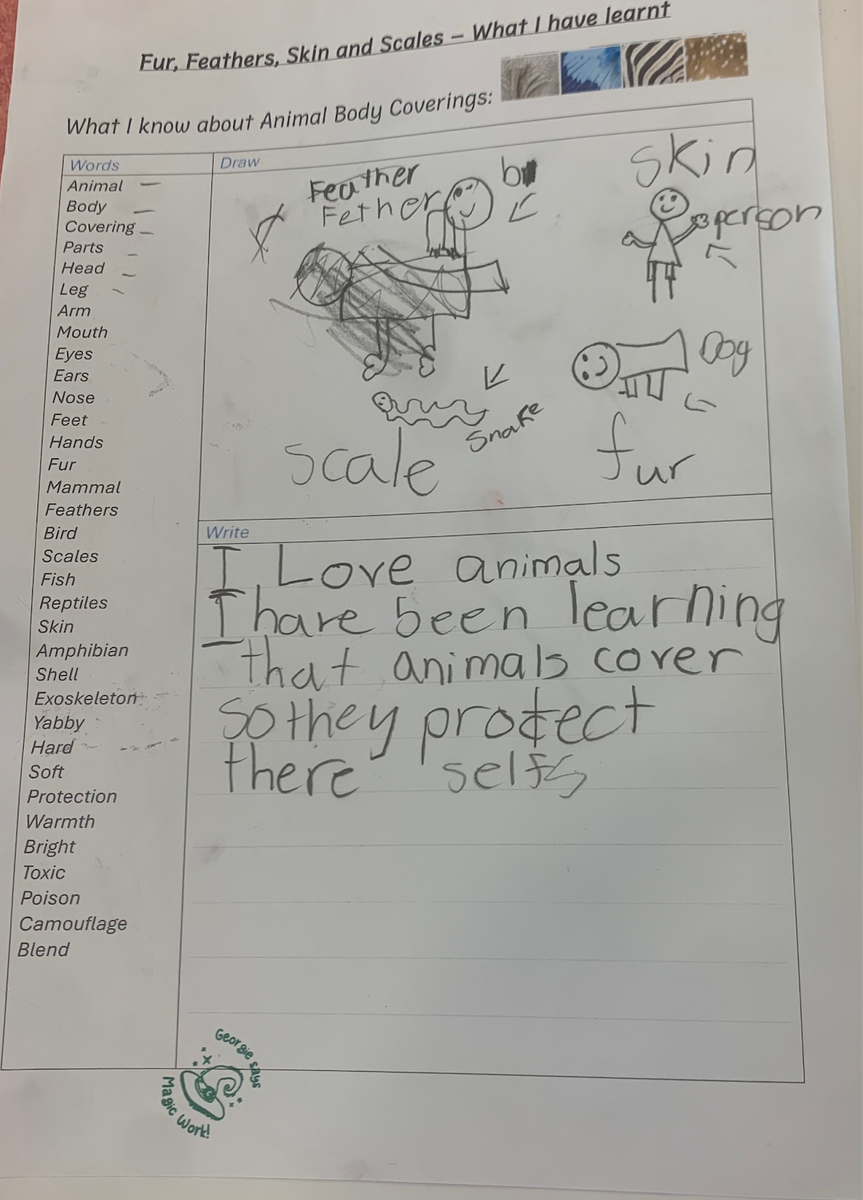 Fur, Feathers, Skin and Scales – What I have learnt
What I know about Animal Body Coverings:
Words
Animal
Body
Covering
Parts
Head
Leg
Arm
Mouth
Eyes
Ears
Nose
Feet
Hands
Fur
Mammal
Feathers
Bird
Scales
Fish
Reptiles
Skin
Amphibian
Shell
Exoskeleton
Yabby
Hard
Soft
Protection
Warmth
Bright
Toxic
Poison
Camouflage
Blend
Draw
Feather
Fether
Skin
person
Dog
Snake
Scale
fur
Write
I Love animals
I have been learning
that animals cover
so they protect
there selfs
Georgie says
Magic Work!